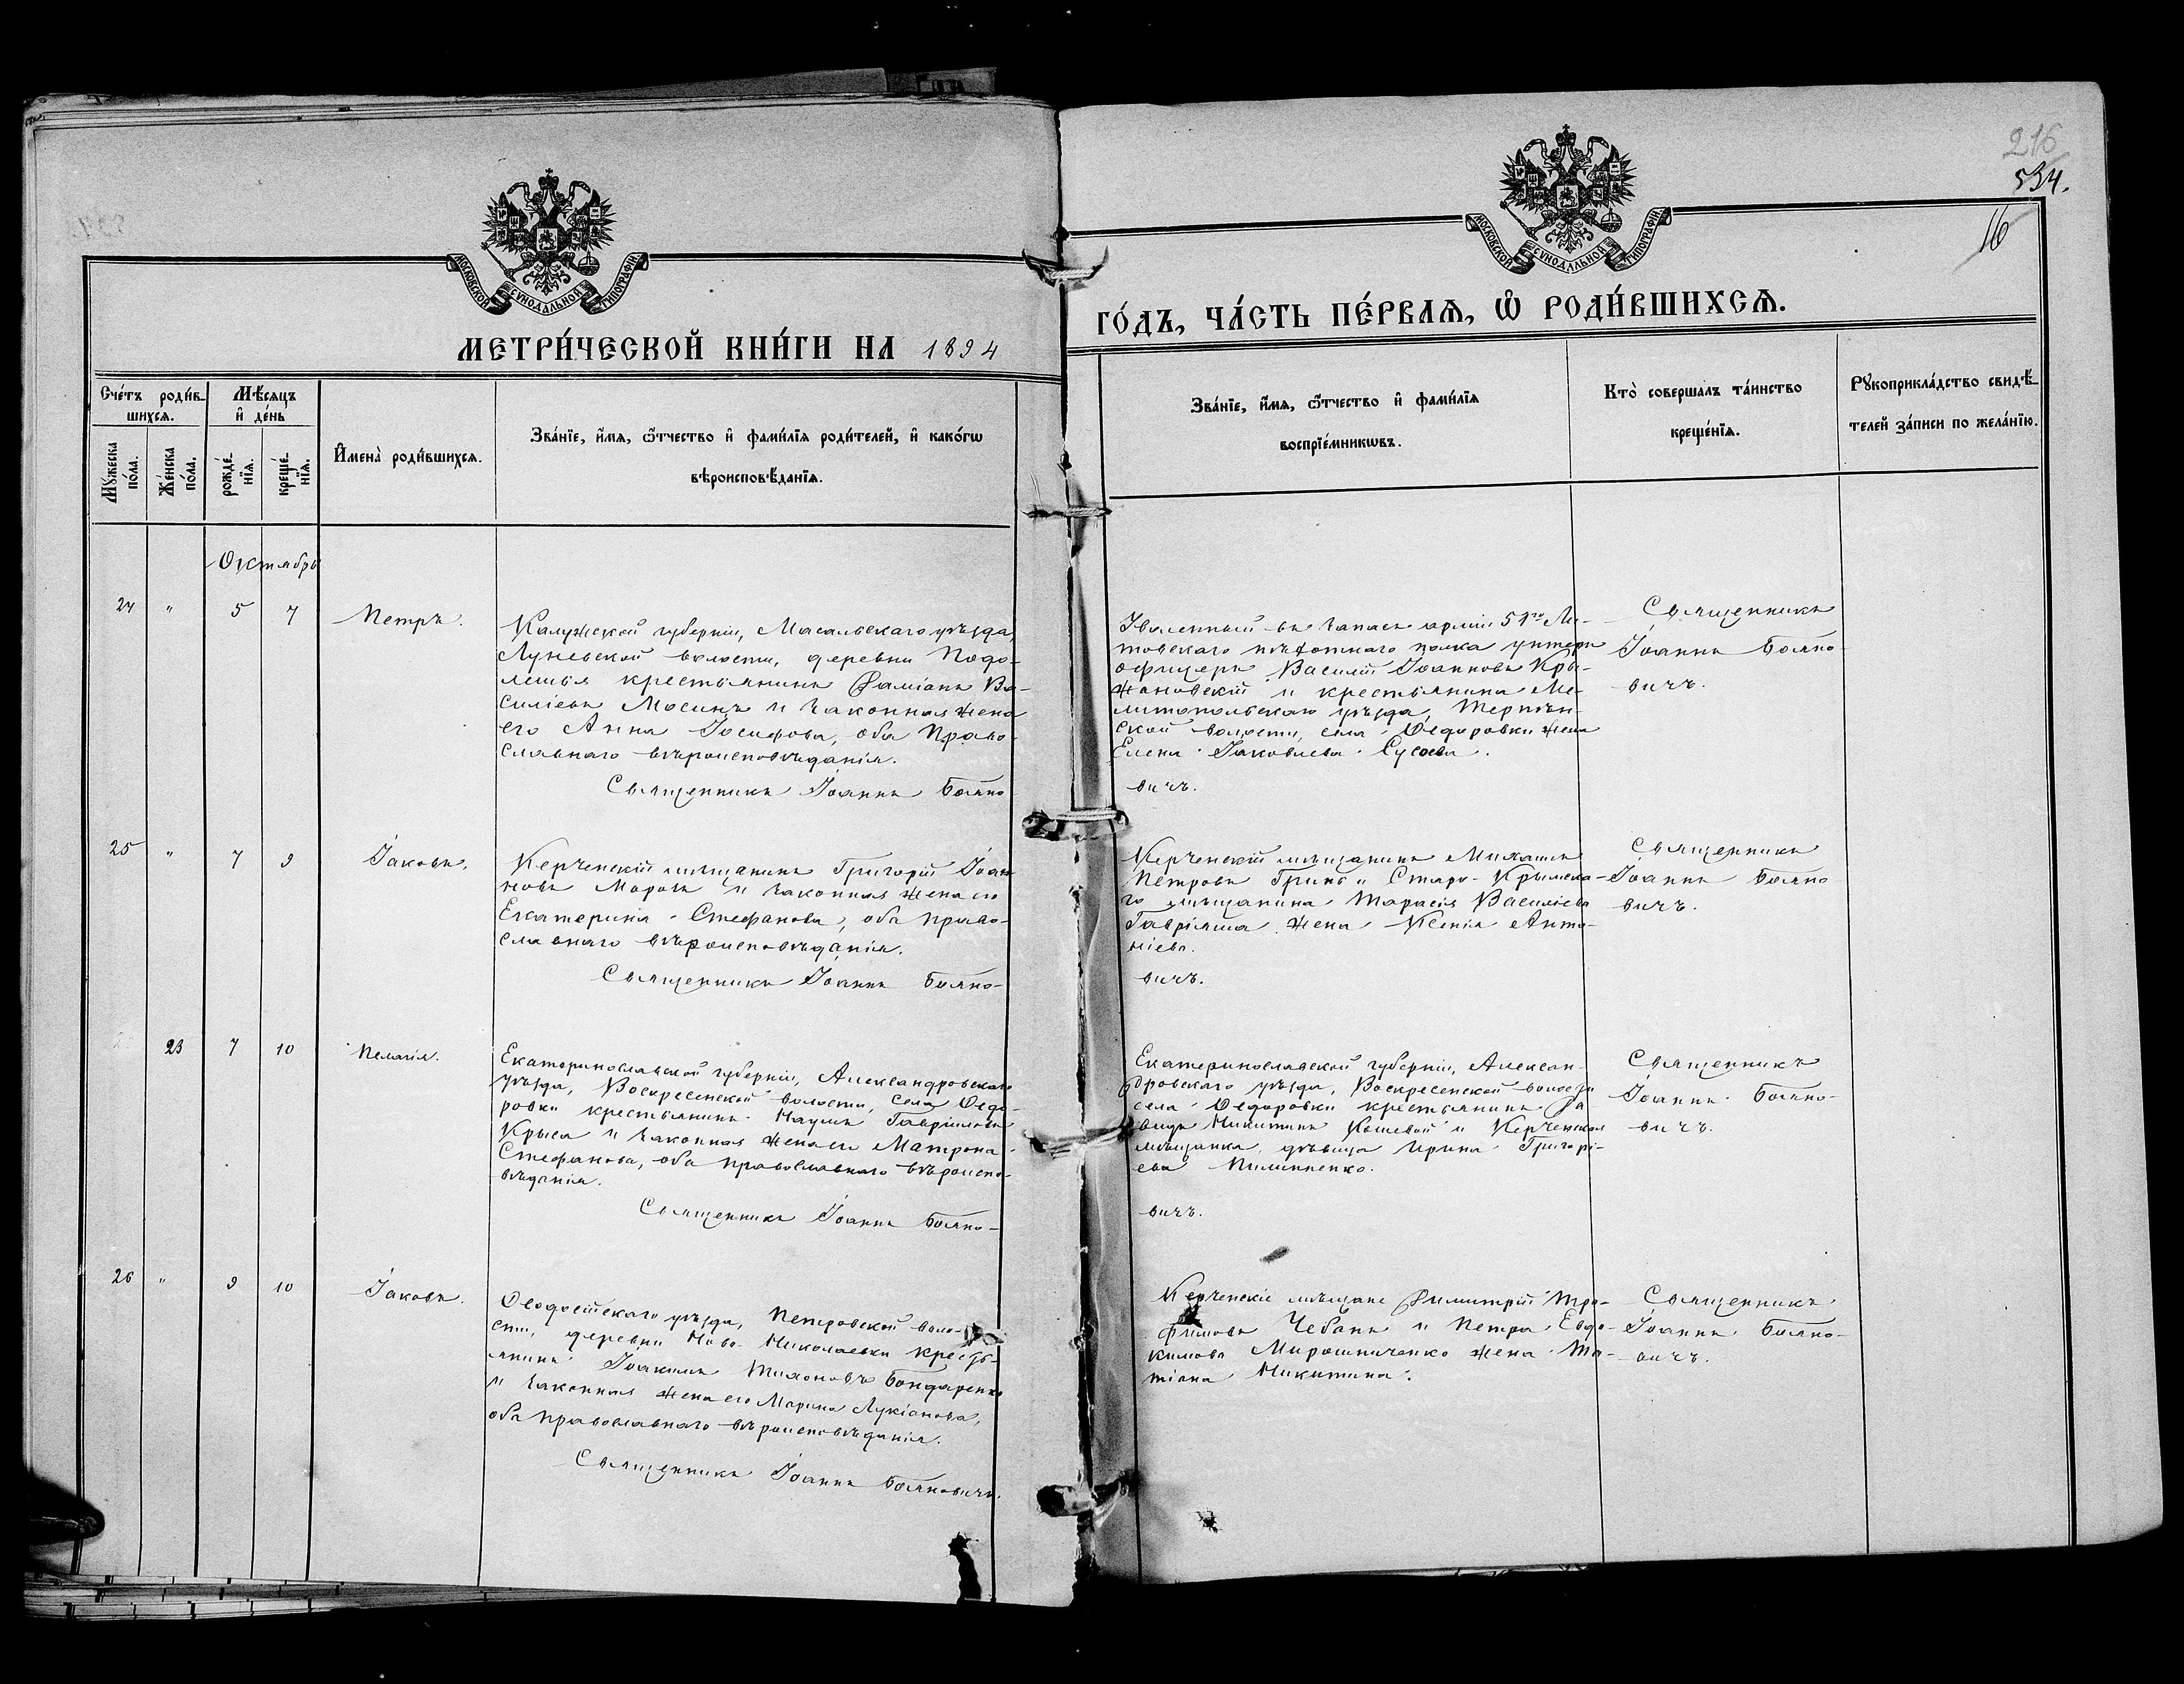 216
534.
16
МОСКОВСКОЙ СУНОДАЛЬНОЙ ТИПОГРАФІИ
МОСКОВСКОЙ СУНОДАЛЬНОЙ ТИПОГРАФІИ
МЕТРИ́ЧЕСКОЙ КНИ́ГИ НА 1894
ГО́ДЪ, ЧА́СТЬ ПЕ́РВАѦ, Ѽ РОДИ́ВШИХСѦ.
Сче́тъ роди́в-
шихсѧ.
Мѣ́сѧцъ
и҆ де́нь
Мꙋ́жеска
по́ла.
Же́нска
по́ла.
рожде́-
нїѧ.
креще́-
нїѧ.
И҆мена̀ роди́вшихсѧ.
Зва́нїе, и҆́мѧ, ѻ҆́тчество и҆ фами́лїѧ роди́телей, и҆ како́гѡ
вѣроисповѣ́данїѧ.
Зва́нїе, и҆́мѧ, ѻ҆́тчество и҆ фами́лїѧ
воспрїе́мникѡвъ.
Кто̀ соверша́лъ та́инство
креще́нїѧ.
Рꙋкоприкла́дство свидѣ́-
телей за́писи по жела́нїю.
Октябрь
24 " 5 7 Петръ.
Калужской губерніи, Масальскаго уѣзда,
Луневской волости, деревни Подо-
лешья крестьянинъ Даміанъ Ва-
силіевъ Мосинъ и законная жена
его Анна Іосифова, оба право-
славнаго вѣроисповѣданія.
Священникъ Іоаннъ Бояно-
Уволенный въ запасъ арміи 51го Ли-
товскаго пѣхотнаго полка унтеръ
офицеръ Василій Іоанновъ Кры-
жановскій и крестьянина Ме-
литопольскаго уѣзда, Терпѣн-
ской волости, села Ѳедоровки жена
Елена Іаковлева Сусоева.
вичъ.
Священникъ
Іоаннъ Бояно-
вичъ.
25 " 7 9 Іаковъ.
Керченскій мѣщанинъ Григорій Іоан-
новъ Морозъ и законная жена его
Екатерина Стефанова, оба право-
славнаго вѣроисповѣданія.
Священникъ Іоаннъ Бояно-
Керченскій мѣщанинъ Михаилъ
Петровъ Гринь и Старо-Крымска-
го мѣщанина Тарасія Василіева
Гавріяша жена Ксенія Анто-
ніева.
вичъ.
Священникъ
Іоаннъ Бояно-
вичъ.
23 7 10 Пелагія.
Екатеринославской губерніи, Александровскаго
уѣзда, Воскресенской волости, села Ѳедо-
ровки крестьянинъ Наумъ Гавріиловъ
Крыса и законная жена его Матрона
Стефанова, оба православнаго вѣроиспо-
вѣданія.
Священникъ Іоаннъ Бояно-
Екатеринославской губерніи, Алексан-
дровскаго уѣзда, Воскресенской волости
села Ѳедоровки крестьянинъ Да-
видъ Никитинъ Кошевой и Керченская
мѣщанка дѣвица Ирина Григорі-
ева Пилипенко.
вичъ.
Священникъ
Іоаннъ Бояно-
вичъ.
26 " 9 10 Іаковъ.
Ѳеодосійскаго уѣзда, Петровской воло-
сти, деревни Ново-Николаевки кресть-
янинъ Іоакимъ Тихоновъ Бондаренко
и законная жена его Марина Лукіанова,
оба православнаго вѣроисповѣданія.
Священникъ Іоаннъ Бояновичъ.
Керченскіе мѣщане Димитрій Тро-
фимовъ Чебанъ и Петра Евдо-
кимова Мирошниченко жена Та-
тіана Никитина.
Священникъ
Іоаннъ Бояно-
вичъ.